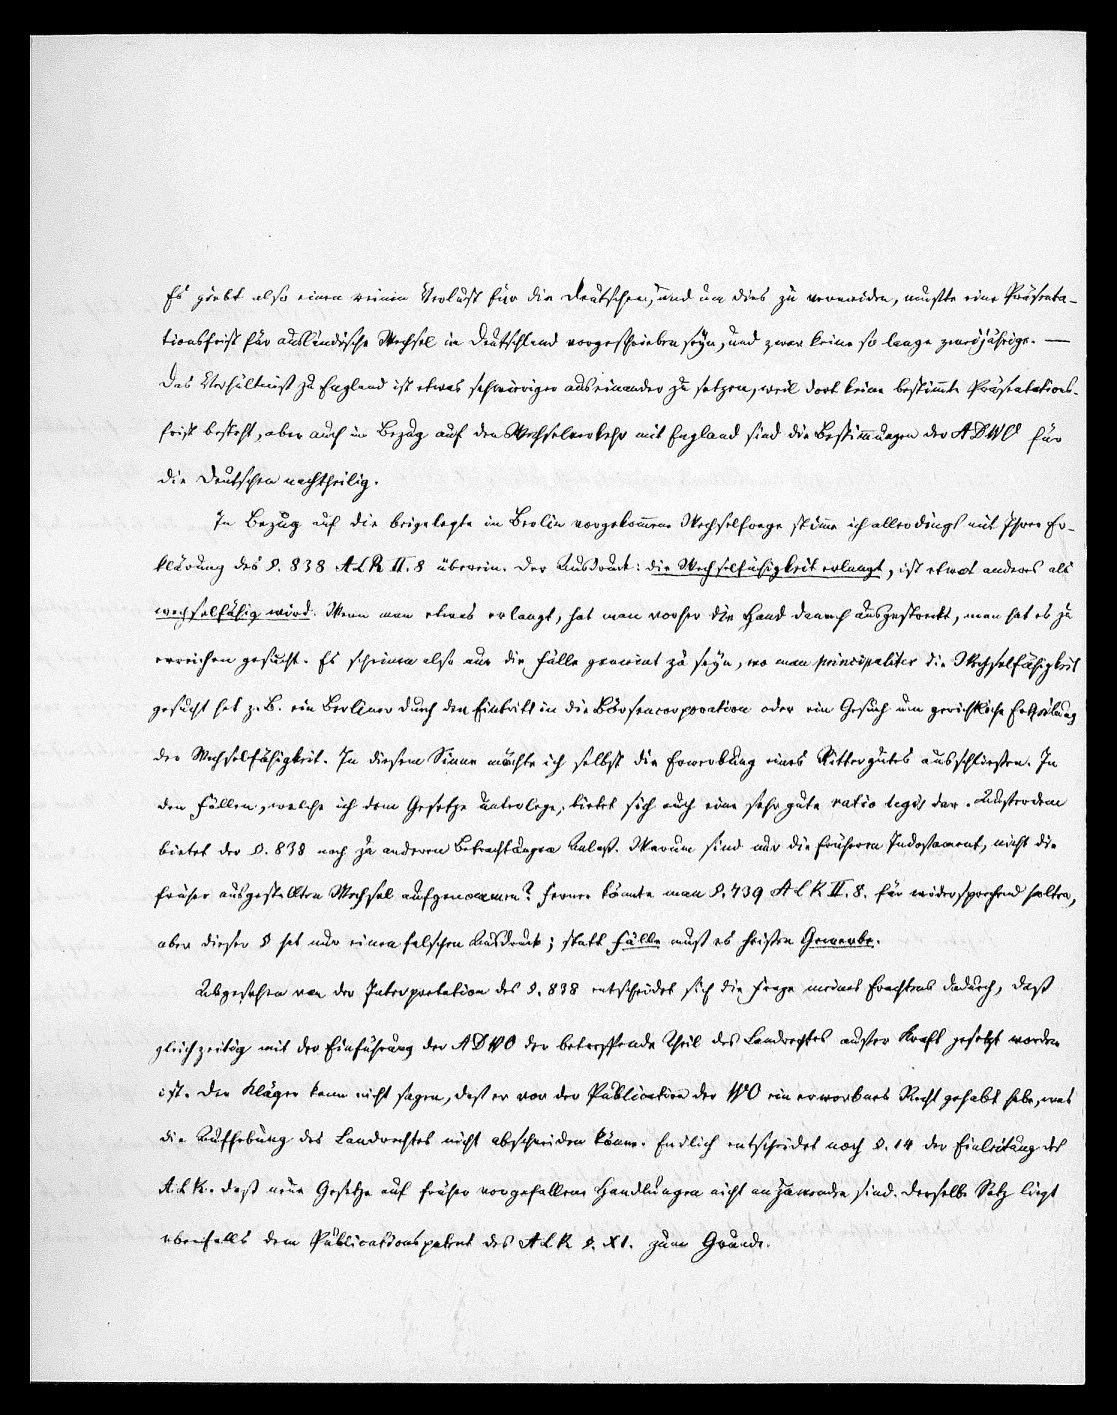 Es giebt also einen reinen Verlust für die Deutschen, und um dies zu vermeiden, mußte eine Präsenta-
tionsfrist für ausländische Wechsel in Deutschland vorgeschrieben seyn, und zwar keine so lange zweijährige. —
Das Verhältniß zu England ist etwas schwieriger auseinander zu setzen, weil dort keine bestimmte Präsentations-
frist besteht, aber auch in Bezug auf den Wechselverkehr mit England sind die Bestimmungen der ADWO für
die Deutschen nachtheilig.
In Bezug auf die beigelegte in Berlin vorgekommene Wechselfrage stimme ich allerdings mit Ihrer Er-
klärung des §. 838 ALR II. 8 überein. Der Ausdruck: die Wechselfähigkeit erlangt, ist etwas anderes als
wechselfähig wird. Wenn man etwas erlangt, hat man vorher die Hand danach ausgestreckt, man hat es zu
erreichen gesucht. Es scheinen also nur die Fälle gemeint zu seyn, wo man principaliter die Wechselfähigkeit
gesucht hat z.B. ein Berliner durch den Eintritt in die Börsencorporation oder ein Gesuch um gerichtliche Ertheilung
der Wechselfähigkeit. In diesem Sinne möchte ich selbst die Erwerbung eines Rittergutes ausschließen. In
den Fällen, welche ich dem Gesetze unterlege, bietet sich auch eine sehr gute ratio legis dar. Außerdem
bietet der §. 838 noch zu anderen Betrachtungen Anlaß. Warum sind nur die früheren Indossament, nicht die
früher ausgestellten Wechsel aufgenommen? Ferner könnte man §. 739 ALR II. 8. für widersprechend halten,
aber dieser § hat nur einen falschen Ausdruck; statt Fälle muß es heißen Gewerbe.
Abgesehen von der Interpretation des §. 838 entscheidet sich die Frage meines Erachtens dadurch, daß
gleichzeitig mit der Einführung der ADWO der betreffende Theil des Landrechtes außer Kraft gesetzt worden
ist. Der Kläger kann nicht sagen, daß er vor der Publication der WO ein erworbenes Recht gehabt habe, was
die Aufhebung des Landrechtes nicht abschneiden könne. Endlich entscheidet noch §. 14 der Einleitung des
A.L.R. daß neue Gesetze auf früher vorgefallene Handlungen nicht anzuwenden sind. Derselbe Satz liegt
ebenfalls dem Publicationspatent des ALR §. XI. zum Grunde.